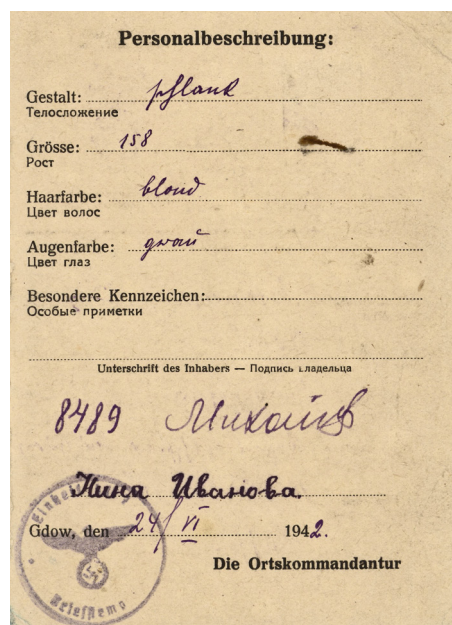 Personalbeschreibung:
Gestalt: schlank
Телосложение
Grösse: 158
Рост
Haarfarbe: blond
Цвет волос
Augenfarbe: grau
Цвет глаз
Besondere Kennzeichen:
Особые приметки
Unterschrift des Inhabers — Подпись владельца
8489
Нина Иванова.
Gdow, den 24/VI 1942.
Die Ortskommandantur